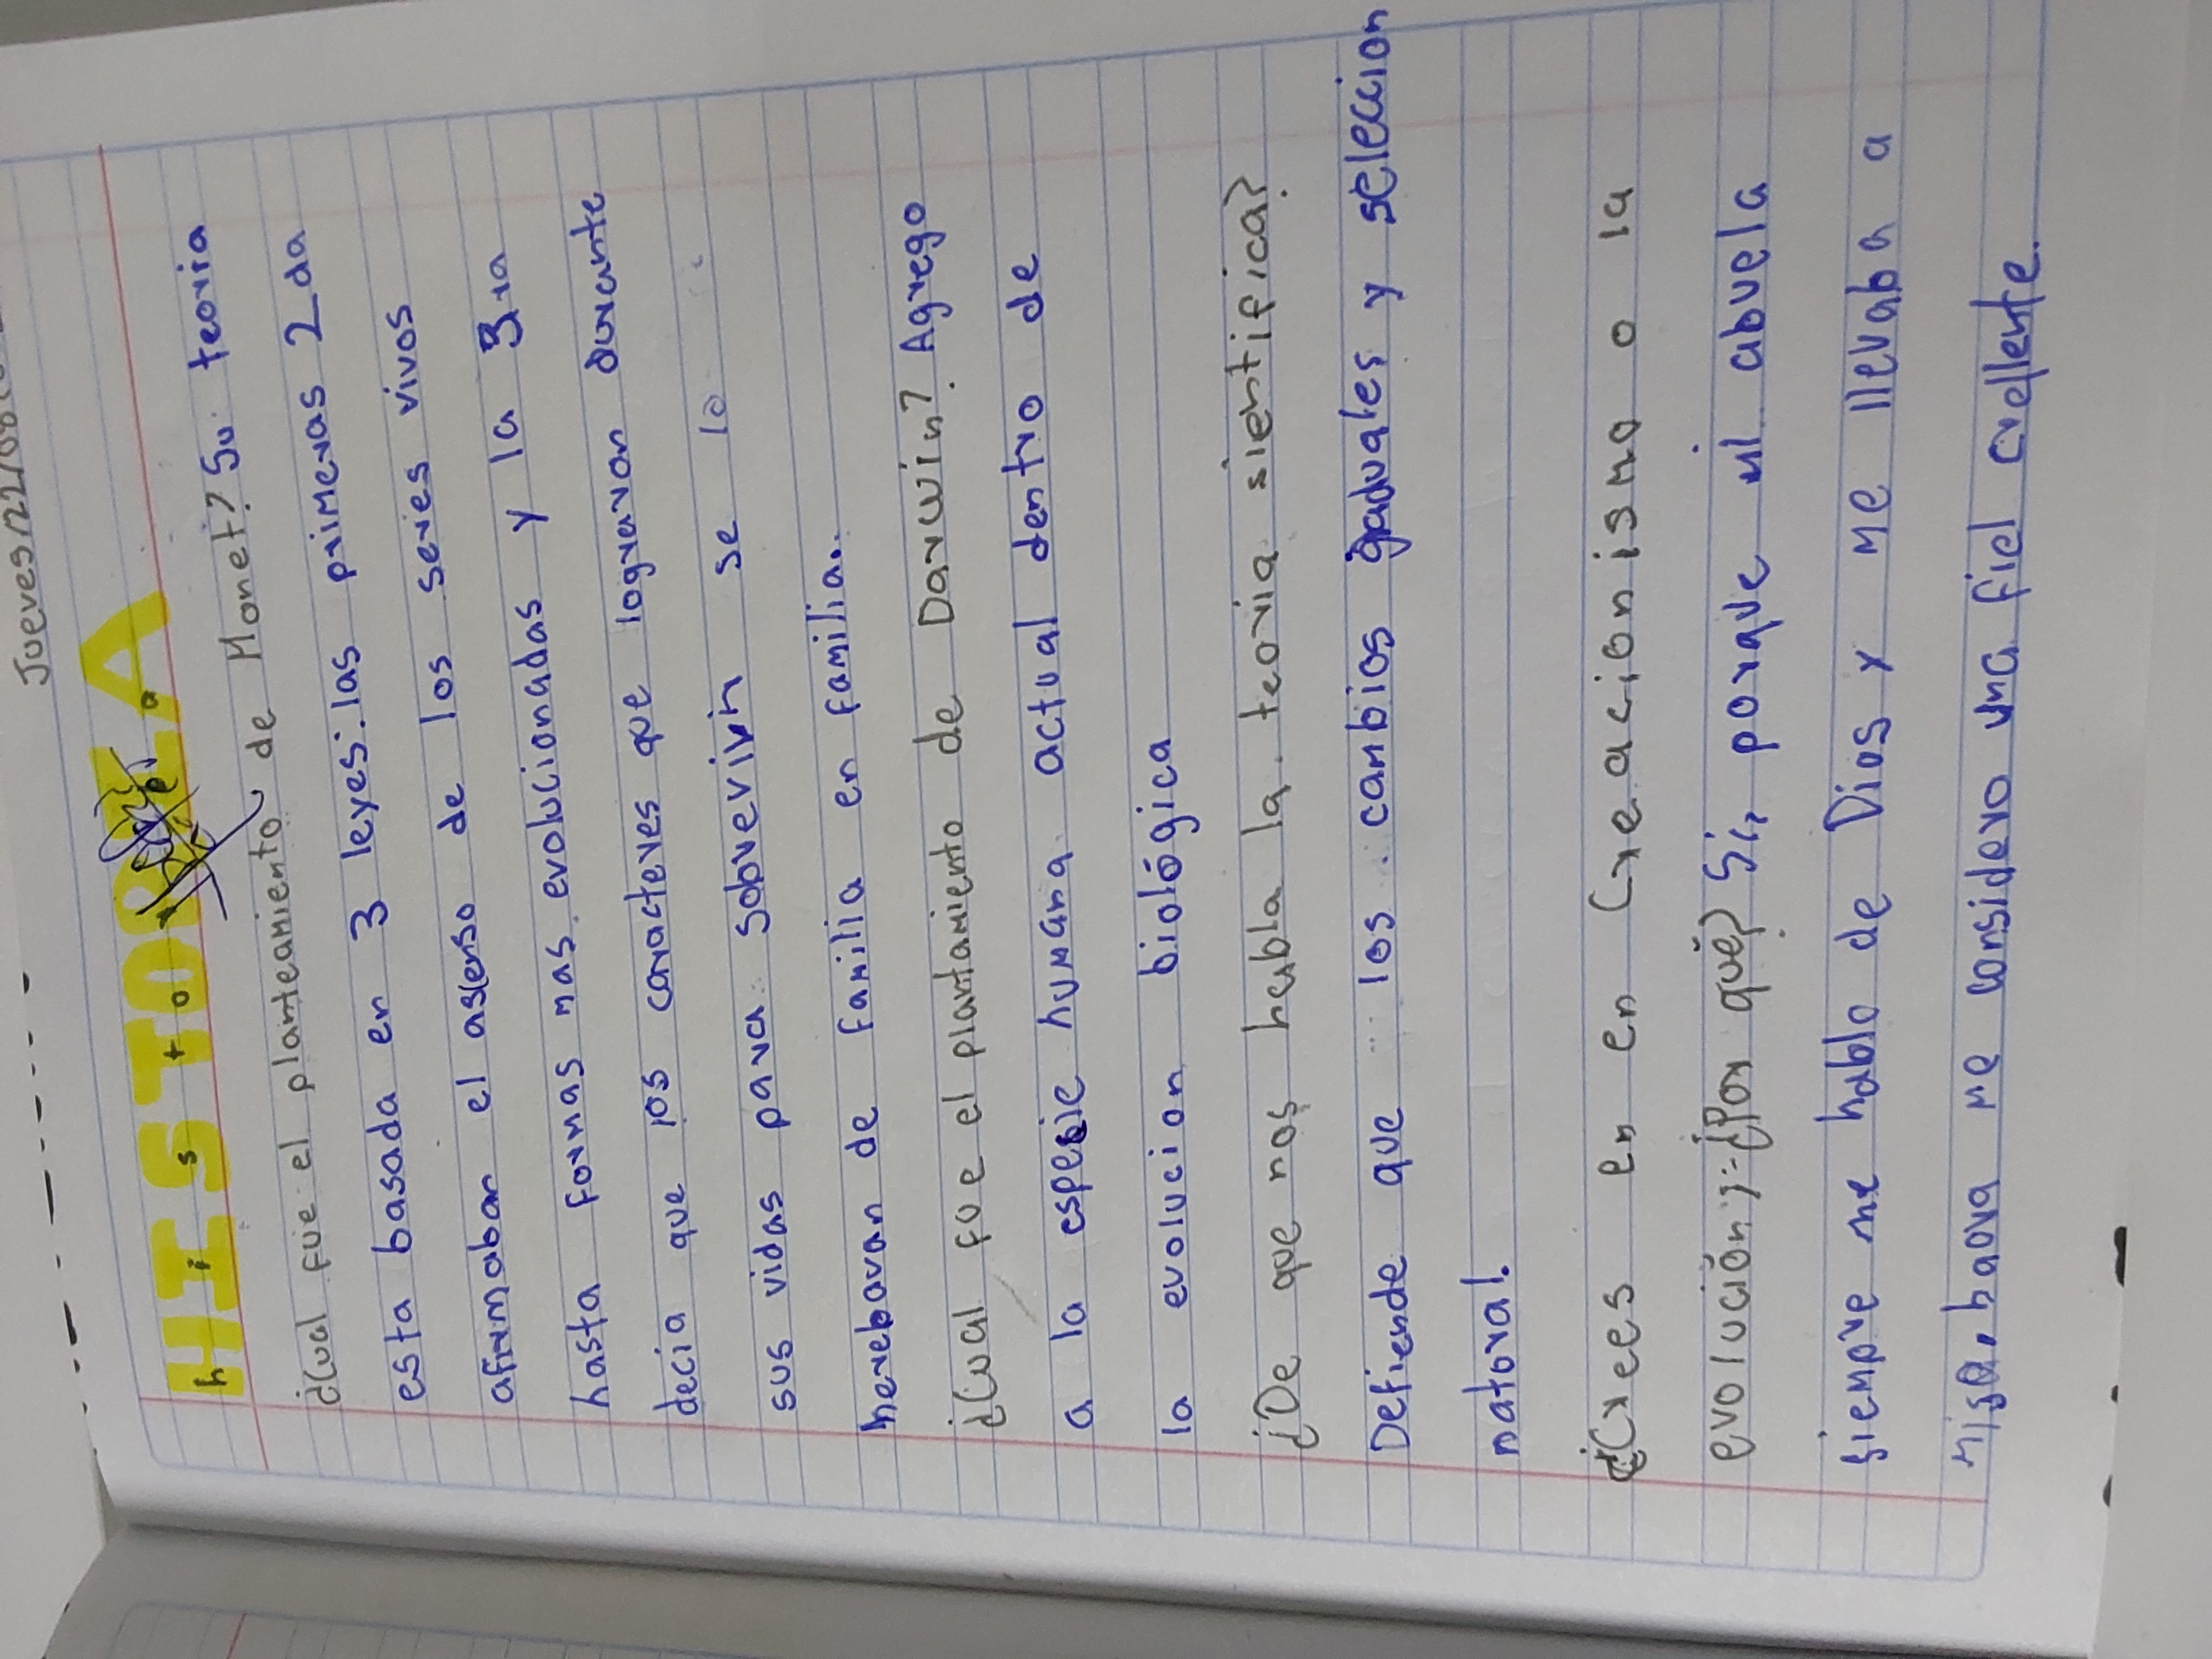 Jueves/22/08
HISTORIA
historia
¿Cual fue el planteamiento de Monet? Su teoria
esta basada en 3 leyes. las primeras 2 da
afirmaban el ascenso de los seres vivos
hasta formas mas evolucionadas y la 3ra
decia que los caracteres que lograran durante
sus vidas para sobrevivir se lo
heredaran de familia en familia.
¿Cual fue el plantamiento de Darwin? Agrego
a la especie humana actual dentro de
la evolucion biológica
¿De que nos habla la teoria sientifica?
Defiende que los cambios graduales y seleccion
natural.
¿Crees en en Creacionismo o la
evolución? ¿Por qué? Si, porque mi abuela
siempre me hablo de Dios y me llevaba a
misa, haora me considero una fiel crellente.